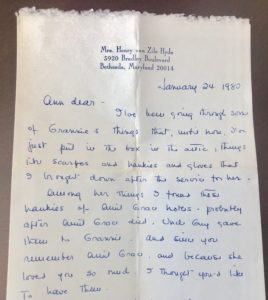 Mrs. Henry van Zile Hyde
5920 Bradley Boulevard
Bethesda, Maryland 20014
January 24 1980
Ann dear -
I've been going through some
of Grannie's things that, until now, I'd
just put in the box in the attic, things
like scarfs and hankies and gloves that
I brought down after the service for her -
Among her things I found
hankies of Aunt Grace - probably
after Aunt Grace died, Uncle Guy gave
them to Grannie. and since you
remember Aunt Grace, and because she
loved you so much I thought you'd like
To have them.